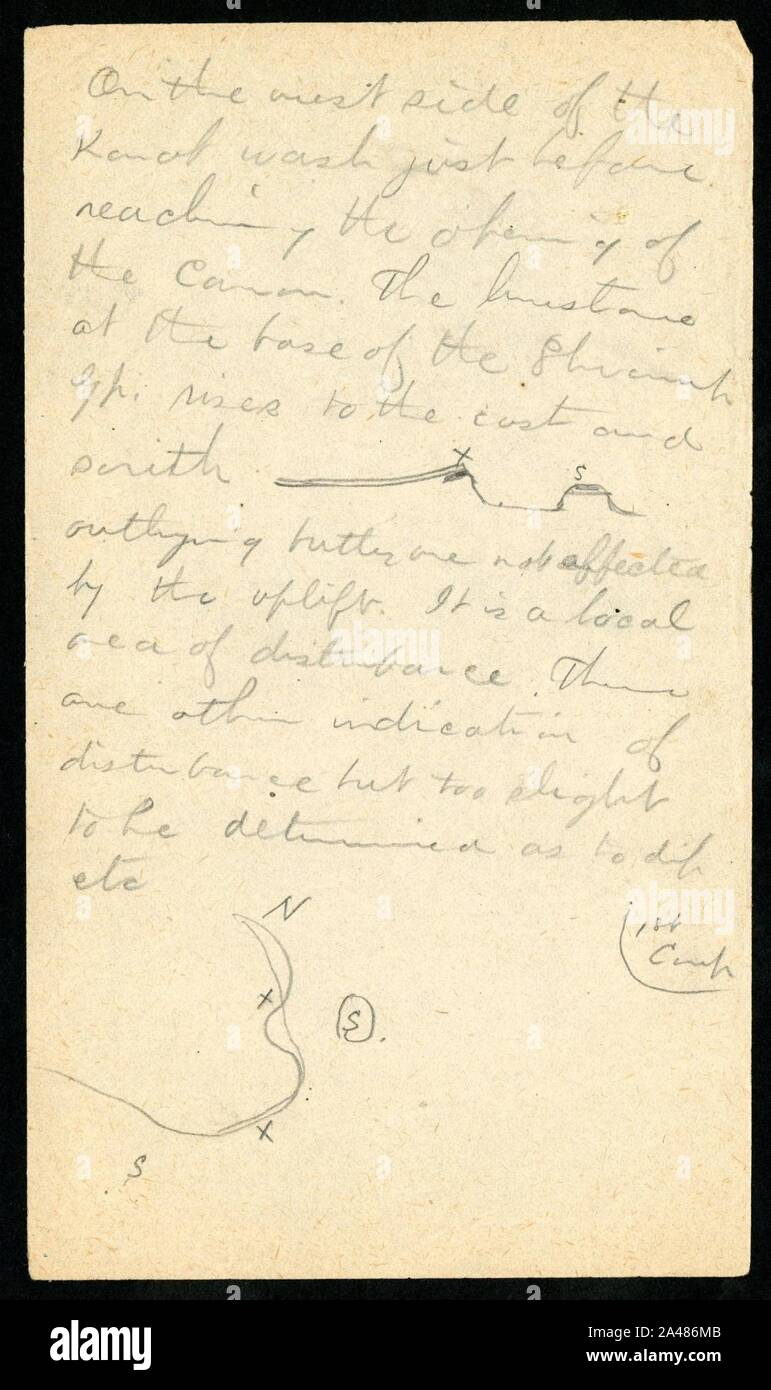 On the west side of the
Kanab wash just before
reaching the opening of
the Canon. The limestone
at the base of the Shinarump
Gp. rises to the east and
south
X
S
outlying buttes are not affected
by the uplift. It is a local
area of disturbance. There
are other indication of
disturbance but too slight
to be determined as to dip
etc
N
1st
Camp
X
S
X
S
alamy
Image ID: 2A486MB
www.alamy.com